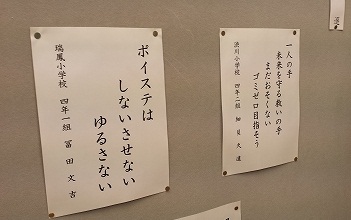 一人の手
未来を守る救いの手
まだおそくない
ゴミゼロ目指そう
渋川小学校 四年二組 細貝久遠
ポイステは
しないさせない
ゆるさない
瑞鳳小学校 四年一組 冨田文吉